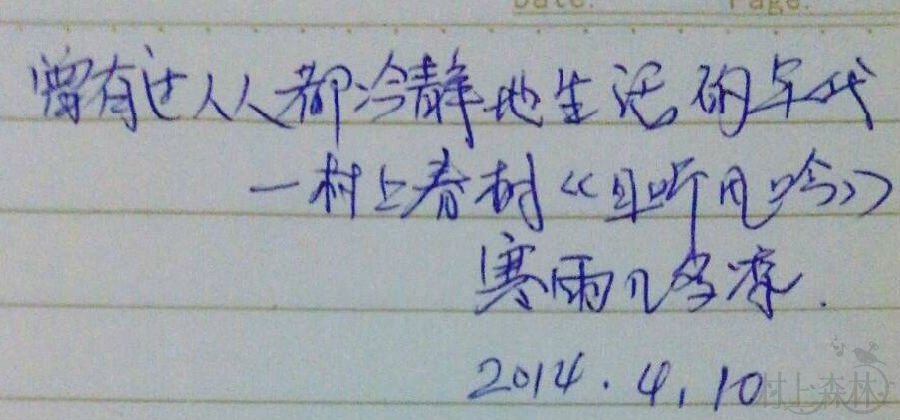 Date. Page.
曾有过人人都冷静地生活的年代
—村上春树《且听风吟》
寒雨几多凉.
2014.4.10
村上森林